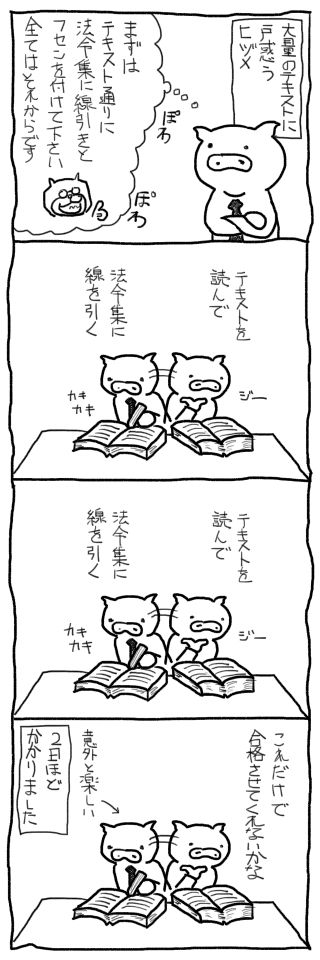 大量のテキストに
戸惑う
ヒヅメ
まずは
テキスト通りに
法令集に線引きと
フセンを付けて下さい
全てはそれからです
ぽわ
ぽわ
テキストを
読んで
法令集に
線を引く
ジー
カキ
カキ
テキストを
読んで
法令集に
線を引く
ジー
カキ
カキ
これだけで
合格させてくれないかな
意外と楽しい
2日ほど
かかりました